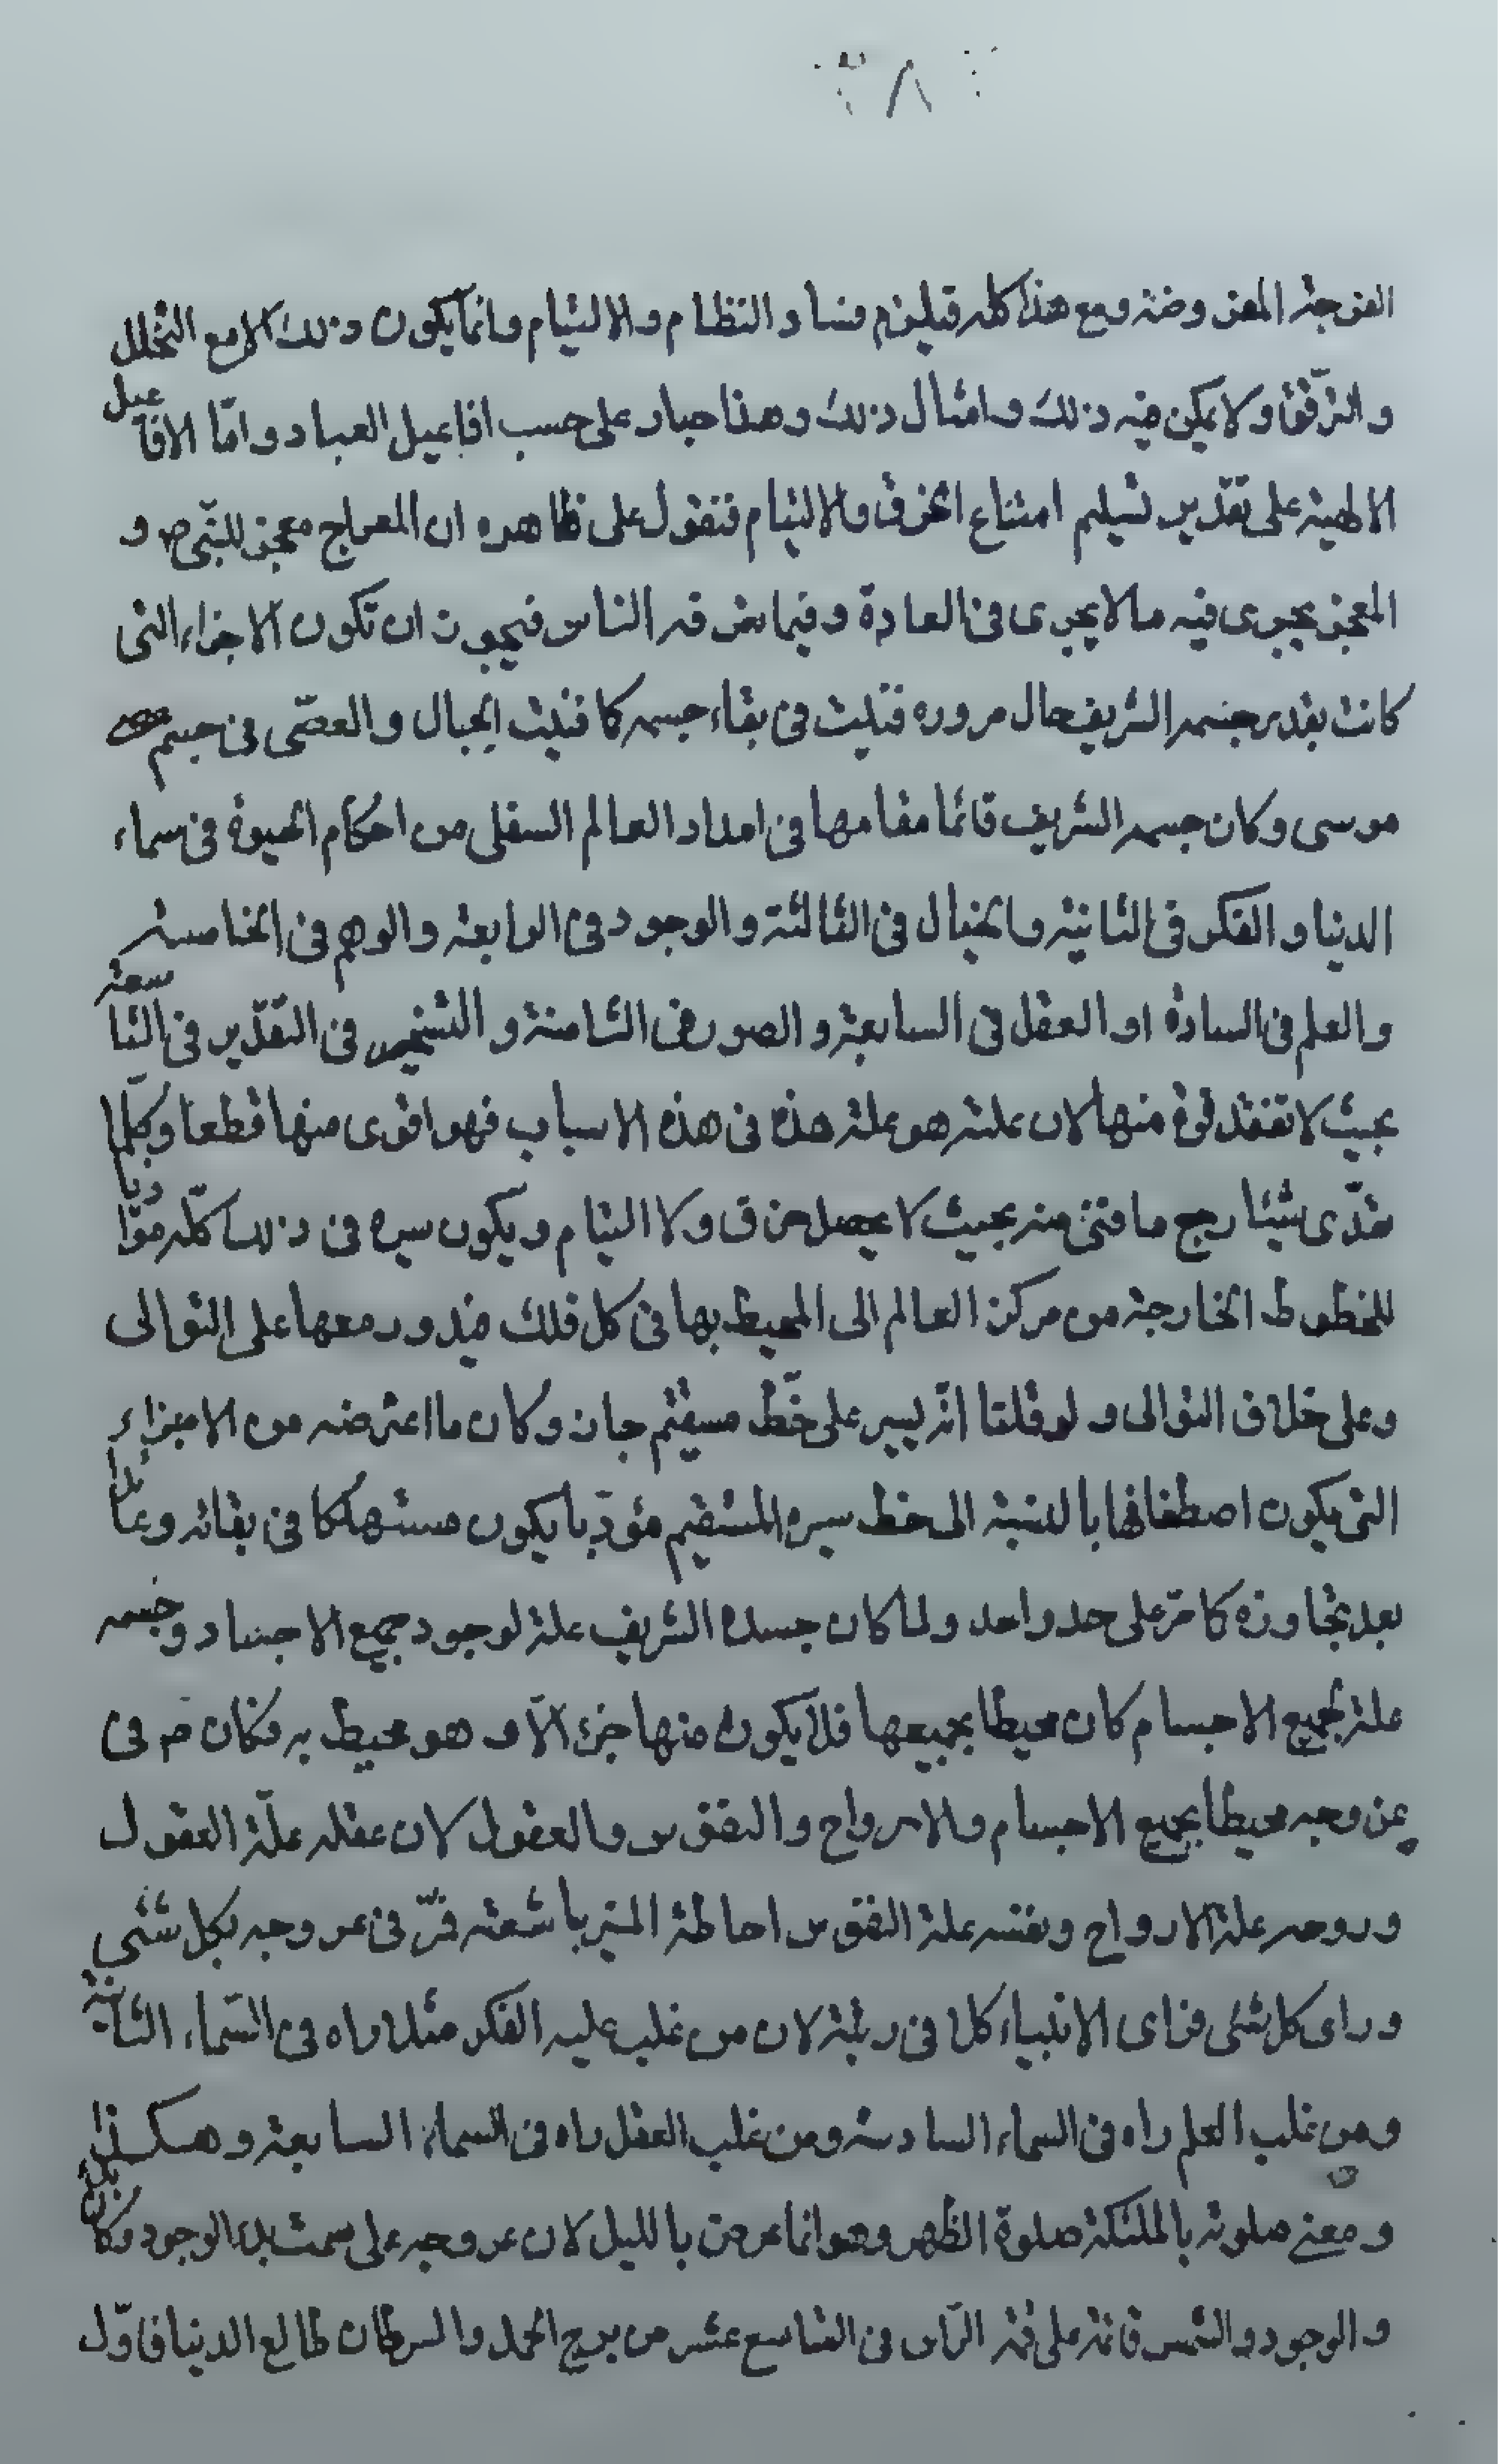 الفرجة المفروضة ومع هذا كله فيلزم فساد النظام والالتيام وانما يكون ذلك الامع التخلل
والترقق ولا يمكن فيه ذلك وامثال ذلك وهذا جار على حسب افاعيل العباد واما الافاعيل
الالهية على تقدير تسليم امتناع الخرق والالتيام فنقول على ظاهره ان المعراج معجز للنبي ص و
المعجز يجرى فيه ما لا يجرى فى العادة وفيما يعرفه الناس فيجوز ان تكون الاجزاء التى
كانت بقدر جسمه الشريف حال مروره فنيت فى بقاء جسمه كما فنيت الجبال والعصى فى جسم عصى
موسى وكان جسمه الشريف قائما مقامها فى امداد العالم السفلى من احكام الحيوة فى سماء
الدنيا والفكر فى الثانية والخيال فى الثالثة والوجود فى الرابعة والوهم فى الخامسة
والعلم فى السادة او العقل فى السابعة والصور فى الثامنة والتسخير فى التقدير فى التاسعة
بحيث لا تفقد قوة منها لان علته هو علة هذه فى هذه الاسباب فهو اقوى منها قطعا وكلما
تعدى شيئا رجع ما فنى منه بحيث لا يحصل خرق ولا التيام ويكون سيره فى ذلك كله موازيا
للخطوط الخارجة من مركز العالم الى المحيط بها فى كل فلك فيدور معها على التوالى
وعلى خلاف التوالى ولو قلنا انه يسير على خط مستقيم جاز وكان ما اعترضه من الاجزاء
التى يكون اصطفافها بالنسبة الى خط سيره المستقيم مؤديا يكون مستهلكا فى بقائه وعائدا
بعد تجاوزه كما مر على حد واحد ولما كان جسده الشريف علة لوجود جميع الاجساد وجسمه
علة لجميع الاجسام كان محيطا بجميعها فلا يكون منها جزء الا وهو محيط به فكان ص فى
عروجه محيطا بجميع الاجسام والارواح والنفوس والعقول لان عقله علة العقول
وروحه علة الارواح ونفسه علة النفوس احاطة المنير باشعته فمر فى عروجه بكل شئى
وراى كل شئى فراى الانبياء كلا فى رتبته لان من غلب عليه الفكر مثلا راه فى السماء الثانية
ومن غلب العلم راه فى السماء السادسة ومن غلب العقل راه فى السماء السابعة وهكذا
ومعنى صلوته بالملئكة صلوة الظهر وهو انما عرج بالليل لان عروجه على سمت بدء الوجود وكان بدء
والوجود والشمس قائمة على قمة الراس فى التاسع عشر من برج الحمل والسرطان طالع الدنيا فاول